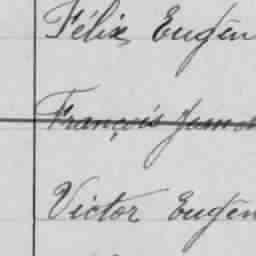 Félix Eugèn
François
Victor Eugèn